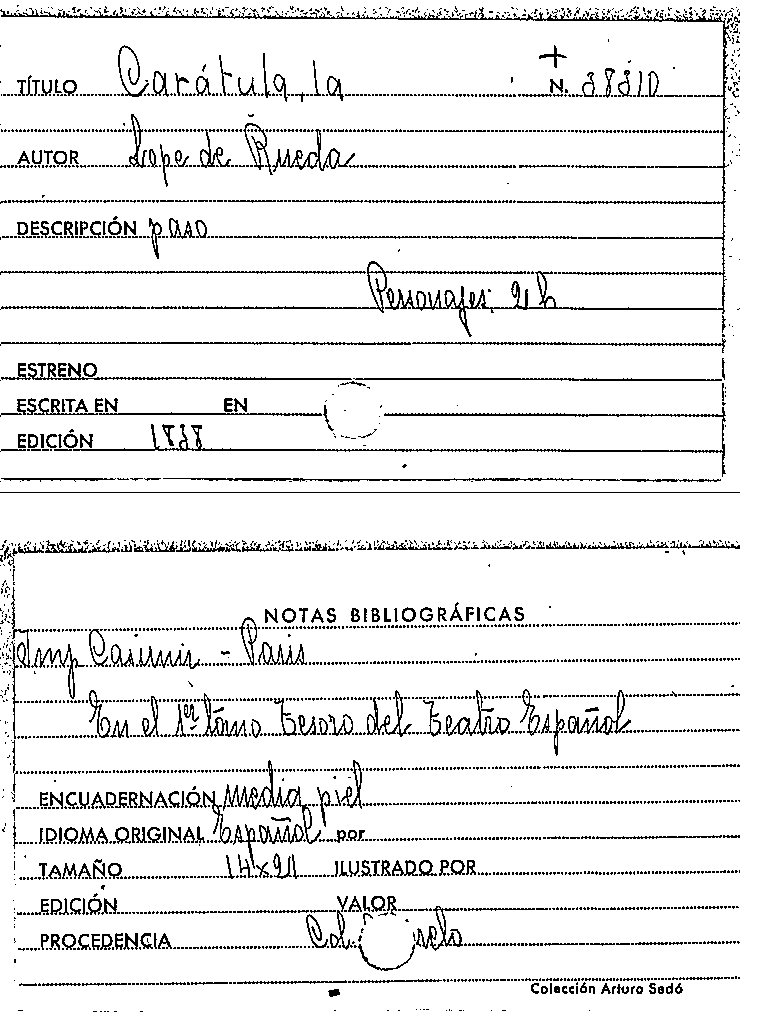 +
TÍTULO Carátula, la N. 38310
AUTOR Lope de Rueda
DESCRIPCIÓN paso
Personajes: 2 h
ESTRENO
ESCRITA EN EN
EDICIÓN 1838
NOTAS BIBLIOGRÁFICAS
Imp Casimir - Paris
En el 1er tomo Tesoro del Teatro Español
ENCUADERNACIÓN media piel
IDIOMA ORIGINAL Español por
TAMAÑO 14x21 ILUSTRADO POR
EDICIÓN VALOR
PROCEDENCIA Col.
Colección Arturo Sedó